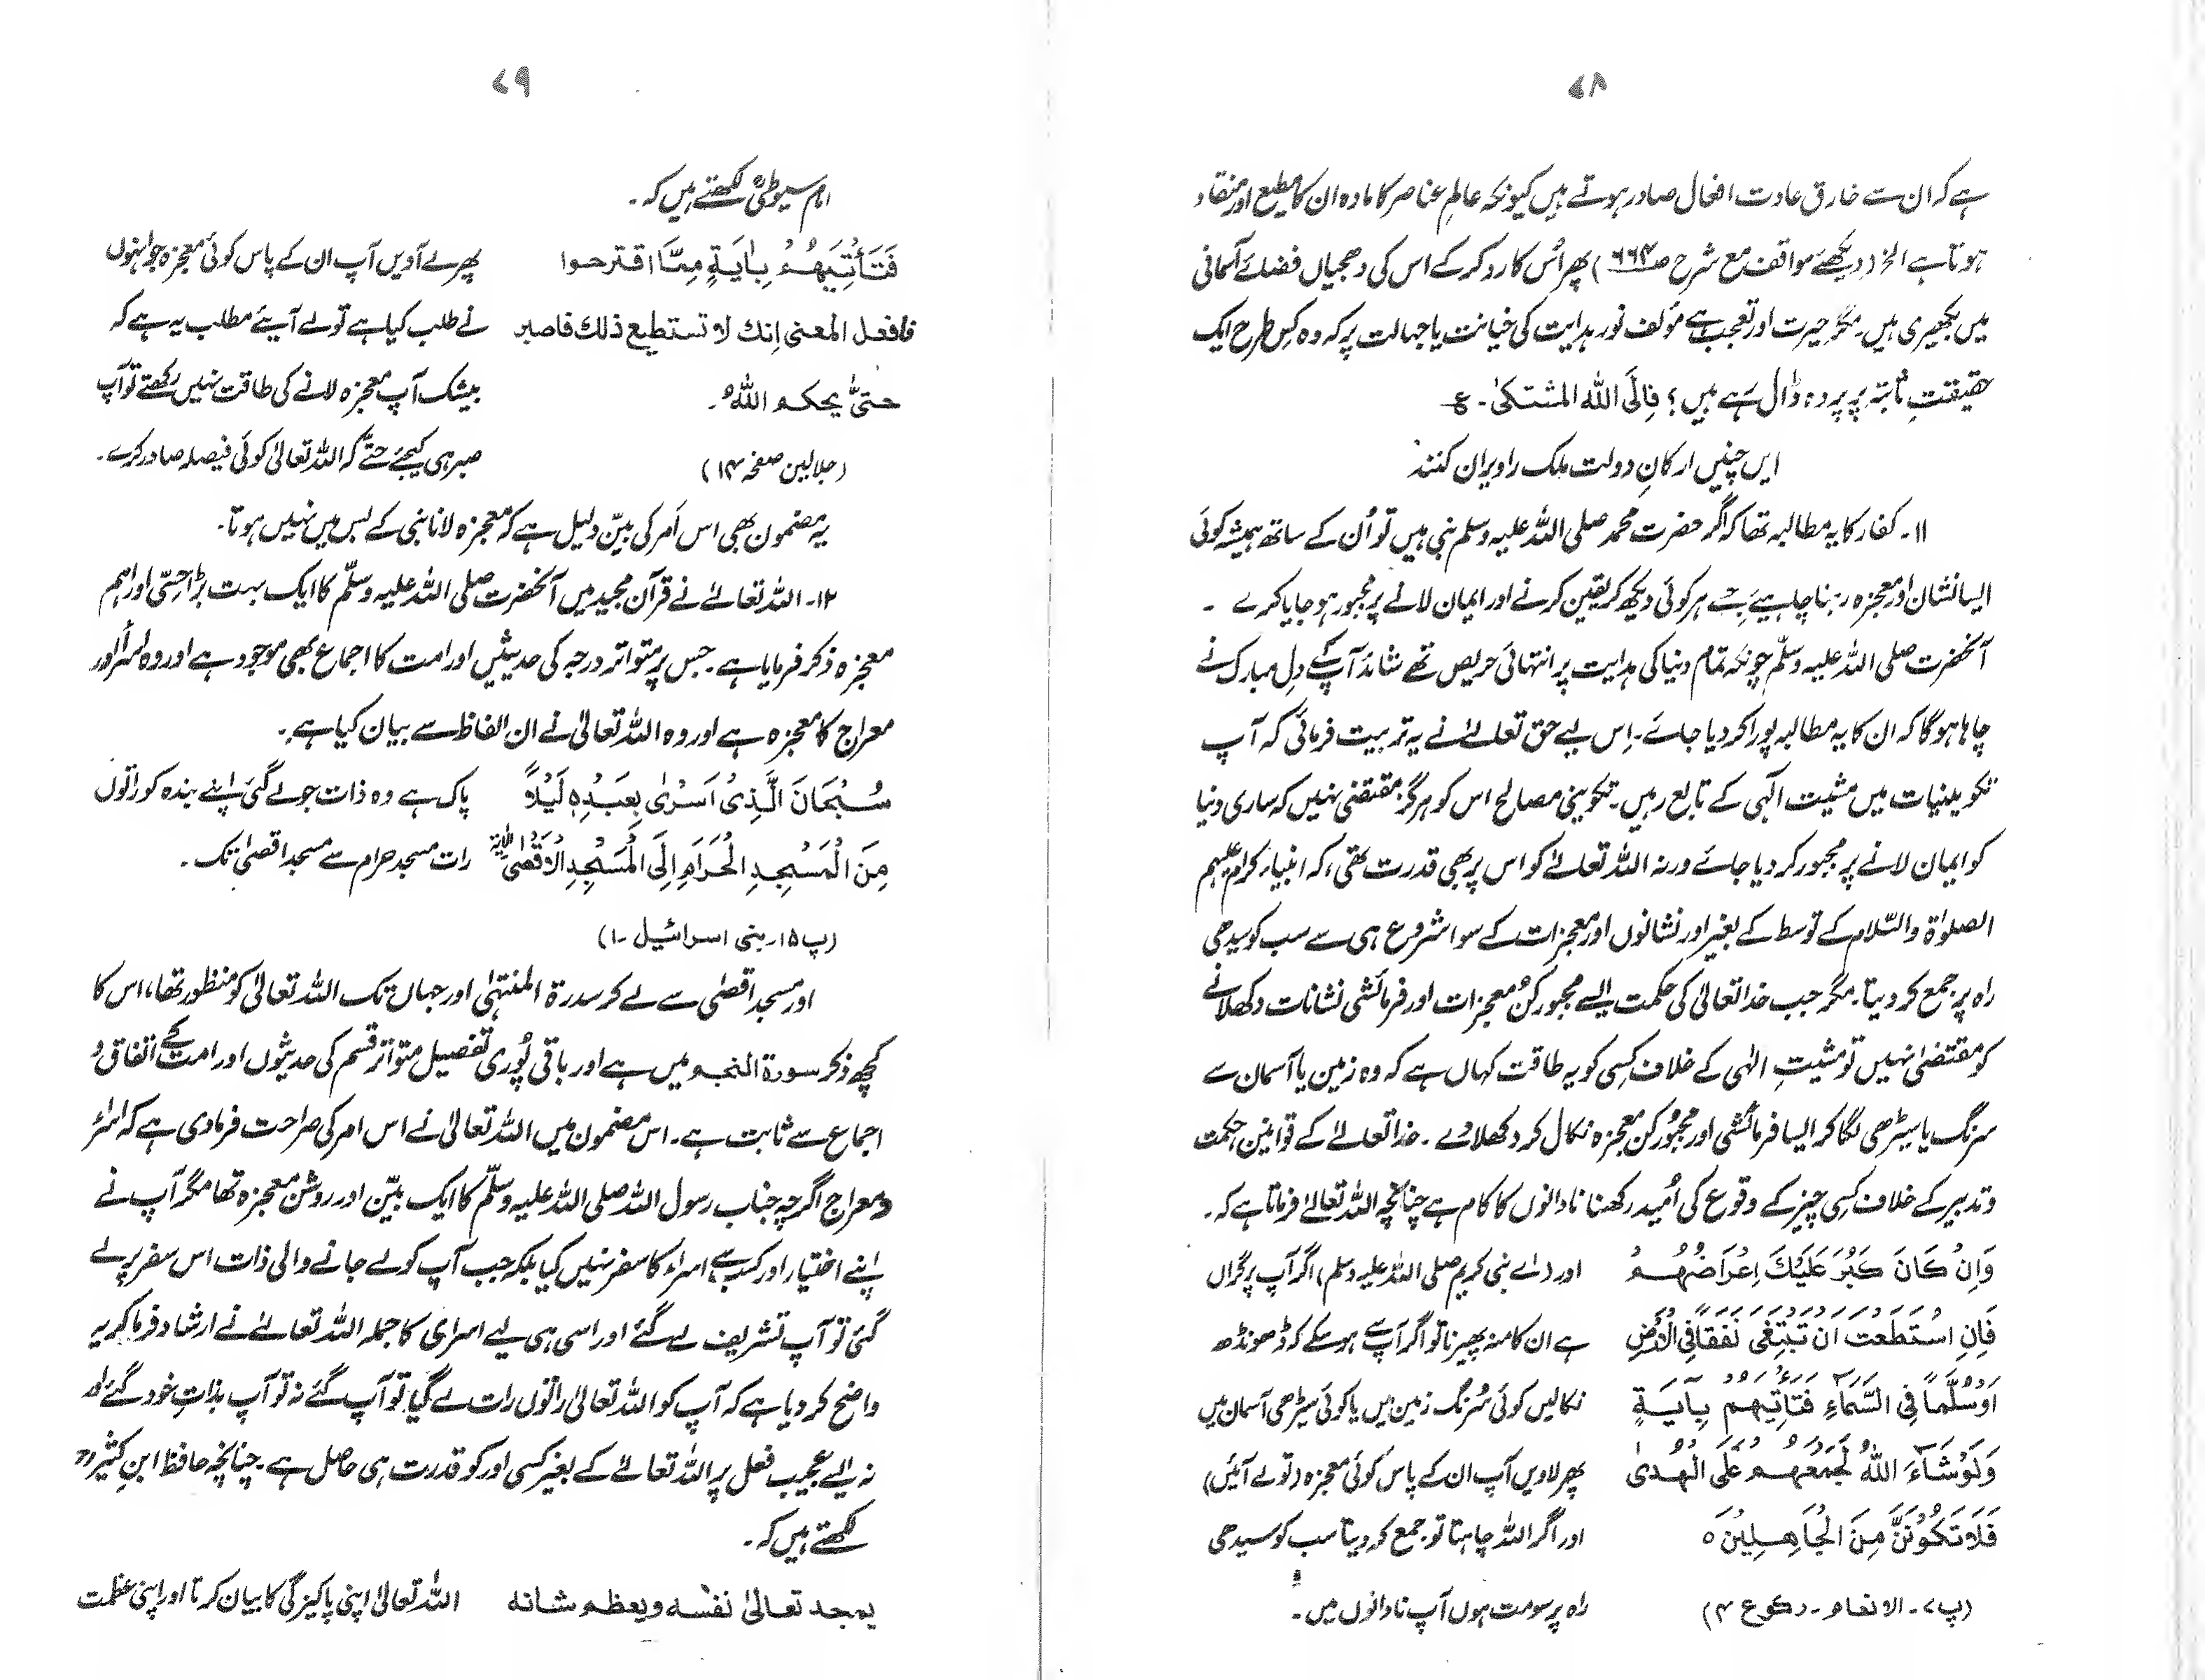 ۷۸
ہے کہ ان سے خارق عادت افعال صادر ہوتے ہیں کیونکہ عالمِ عناصر کا مادہ ان کا مطیع اور منقاد
ہوتا ہے الخ (دیکھئے مواقف مع شرح ص۶۶۴) پھر اُس کا رد کر کے اس کی دھجیاں فضائے آسمانی
میں بکھیری ہیں۔ مگر حیرت اور تعجب ہے مؤلف نور ہدایت کی خیانت یا جہالت پر کہ وہ کس طرح ایک
حقیقتِ ثابتہ پر پردہ ڈال رہے ہیں؟ فالَی اللہ المشتکیٰ۔ ع
ایں چنیں ارکانِ دولت ملک را ویران کنند
۱۱۔ کفار کا یہ مطالبہ تھا کہ اگر حضرت محمد صلی اللہ علیہ وسلم نبی ہیں تو اُن کے ساتھ ہمیشہ کوئی
ایسا نشان اور معجزہ رہنا چاہیے جسے ہر کوئی دیکھ کر یقین کرنے اور ایمان لانے پر مجبور ہو جایا کرے ۔
آنحضرت صلی اللہ علیہ وسلّم چونکہ تمام دنیا کی ہدایت پر انتہائی حریص تھے شائد آپ کے دلِ مبارک نے
چاہا ہوگا کہ ان کا یہ مطالبہ پورا کر دیا جائے۔ اِس لیے حق تعالےٰ نے یہ تربیت فرمائی کہ آپ
تکوینیات میں مشیت الٰہی کے تابع رہیں۔ تکوینی مصالح اس کو ہرگز مقتضی نہیں کہ ساری دنیا
کو ایمان لانے پر مجبور کر دیا جائے ورنہ اللہ تعالےٰ کو اس پر بھی قدرت تھی، کہ انبیاء کرام علیہم
الصلوٰۃ والسّلام کے توسط کے بغیر اور نشانوں اور معجزات کے سوا شروع ہی سے سب کو سیدھی
راہ پر جمع کر دیتا۔ مگر جب خدا تعالیٰ کی حکمت ایسے مجبور کُن معجزات اور فرمائشی نشانات دکھلانے
کو مقتضیٰ نہیں تو مشیتِ الٰہی کے خلاف کسی کو یہ طاقت کہاں ہے کہ وہ زمین یا آسمان سے
سرنگ یا سیڑھی لگا کر ایسا فرمائشی اور مجبُور کن معجزہ نکال کر دکھلا دے۔ خدا تعالےٰ کے قوانینِ حکمت
و تدبیر کے خلاف کسی چیز کے وقوع کی اُمید رکھنا نادانوں کا کام ہے چنانچہ اللہ تعالیٰ فرماتا ہے کہ۔
وَاِنْ كَانَ كَبُرَ عَلَيْكَ اِعْرَاضُهُمْ اور (اے نبی کریم صلی اللہ علیہ وسلم) اگر آپ پر گراں
فَاِنِ اسْتَطَعْتَ اَنْ تَبْتَغِیَ نَفَقًا فِی الْاَرْضِ ہے ان کا منہ پھیرنا تو اگر آپ سے ہو سکے کہ ڈھونڈھ
اَوْ سُلَّمًا فِی السَّمَآءِ فَتَاْتِیَهُمْ بِاٰیَةٍ نکالیں کوئی سُرنگ زمین میں یا کوئی سیڑھی آسمان میں
وَلَوْ شَآءَ اللهُ لَجَمَعَهُمْ عَلَی الْهُدٰی پھر لاویں آپ ان کے پاس کوئی معجزہ (تو لے آئیں)
فَلَا تَكُوْنَنَّ مِنَ الْجَاهِلِیْنَ ہ اور اگر اللہ چاہتا تو جمع کر دیتا سب کو سیدھی
(پ۷۔ الانعام۔ رکوع ۴) راہ پر سو مت ہوں آپ نادانوں میں۔
۷۹
امام سیوطیؒ لکھتے ہیں کہ۔
فَتَأْتِیَهُمْ بِاٰیَةٍ مِمَّا اقترحوا پھر لے آویں آپ ان کے پاس کوئی معجزہ جو انہوں
فافعل المعنی اِنك لا تستطیع ذلك فاصبر نے طلب کیا ہے تو لے آیئے مطلب یہ ہے کہ
حتیّٰ یحکم اللهُ۔ بیشک آپ معجزہ لانے کی طاقت نہیں رکھتے تو آپ
(جلالین صفحہ ۱۴) صبر ہی کیجئے حتّٰی کہ اللہ تعالیٰ کوئی فیصلہ صادر کرے۔
یہ مضمون بھی اس اَمر کی بیّن دلیل ہے کہ معجزہ لانا نبی کے بس میں نہیں ہوتا۔
۱۲۔ اللہ تعالےٰ نے قرآن مجید میں آنحضرت صلی اللہ علیہ وسلّم کا ایک بہت بڑا حِسّی اور اہم
معجزہ ذکر فرمایا ہے۔ جس پر متواتر درجہ کی حدیثیں اور امت کا اجماع بھی موجود ہے اور وہ اسراء اور
معراج کا معجزہ ہے اور وہ اللہ تعالیٰ نے ان الفاظ سے بیان کیا ہے۔
سُبْحَانَ الَّذِیْ اَسْرٰی بِعَبْدِہٖ لَیْلًا پاک ہے وہ ذات جو لے گئی اپنے بندہ کو راتوں
مِنَ الْمَسْجِدِ الْحَرَامِ اِلَی الْمَسْجِدِ الْاَقْصَی الاٰیة رات مسجد حرام سے مسجد اقصیٰ تک۔
(پ۱۵۔ بنی اسرائیل۔۱)
اور مسجد اقصیٰ سے لے کر سدرۃ المنتہٰی اور جہاں تک اللہ تعالیٰ کو منظور تھا، اس کا
کچھ ذکر سورۃ النجم میں ہے اور باقی پُوری تفصیل متواتر قسم کی حدیثوں اور امت کے اتفاق و
اجماع سے ثابت ہے۔ اس مضمون میں اللہ تعالیٰ نے اس امر کی صراحت فرما دی ہے کہ اسراء
و معراج اگرچہ جناب رسول اللہ صلی اللہ علیہ وسلّم کا ایک بیّن اور روشن معجزہ تھا مگر آپ نے
اپنے اختیار اور کسب سے اسراء کا سفر نہیں کیا بلکہ جب آپ کو لے جانے والی ذات اس سفر پر لے
گئی تو آپ تشریف لے گئے اور اسی ہی لیے اسرای کا جملہ اللہ تعالےٰ نے ارشاد فرما کر یہ
واضح کر دیا ہے کہ آپ کو اللہ تعالیٰ راتوں رات لے گیا تو آپ گئے نہ تو آپ بذاتِ خود گئے اور
نہ ایسے عجیب فعل پر اللہ تعالےٰ کے بغیر کسی اور کو قدرت ہی حاصل ہے۔ چنانچہ حافظ ابنِ کثیرؒ
لکھتے ہیں کہ۔
یمجد تعالیٰ نفسه ویعظم شانه اللہ تعالیٰ اپنی پاکیزگی کا بیان کرتا اور اپنی عظمت